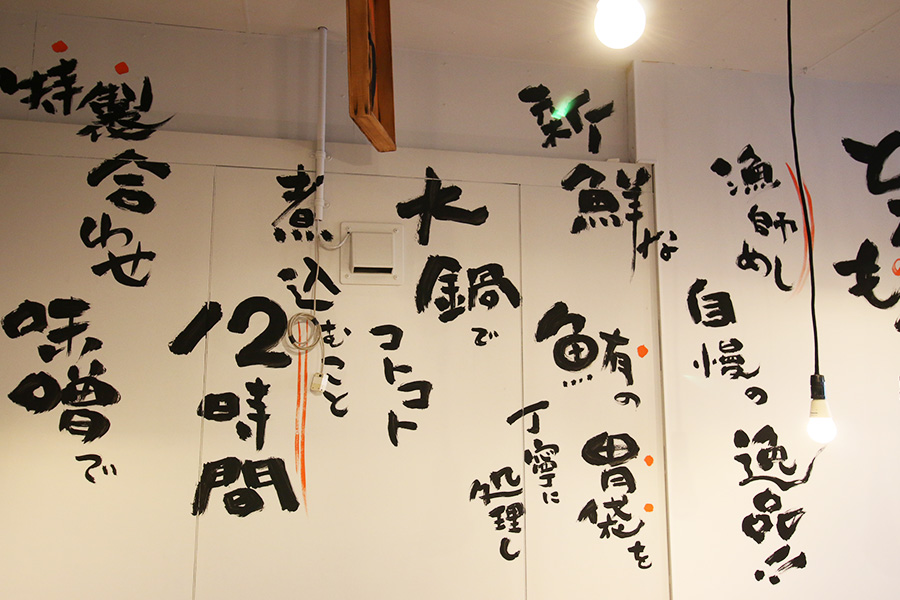 漁師めし
自慢の
逸品!!
新鮮な
鮪の
胃袋を
丁寧に
処理し
大鍋で
コトコト
煮込むこと
12時間
特製合わせ
味噌で